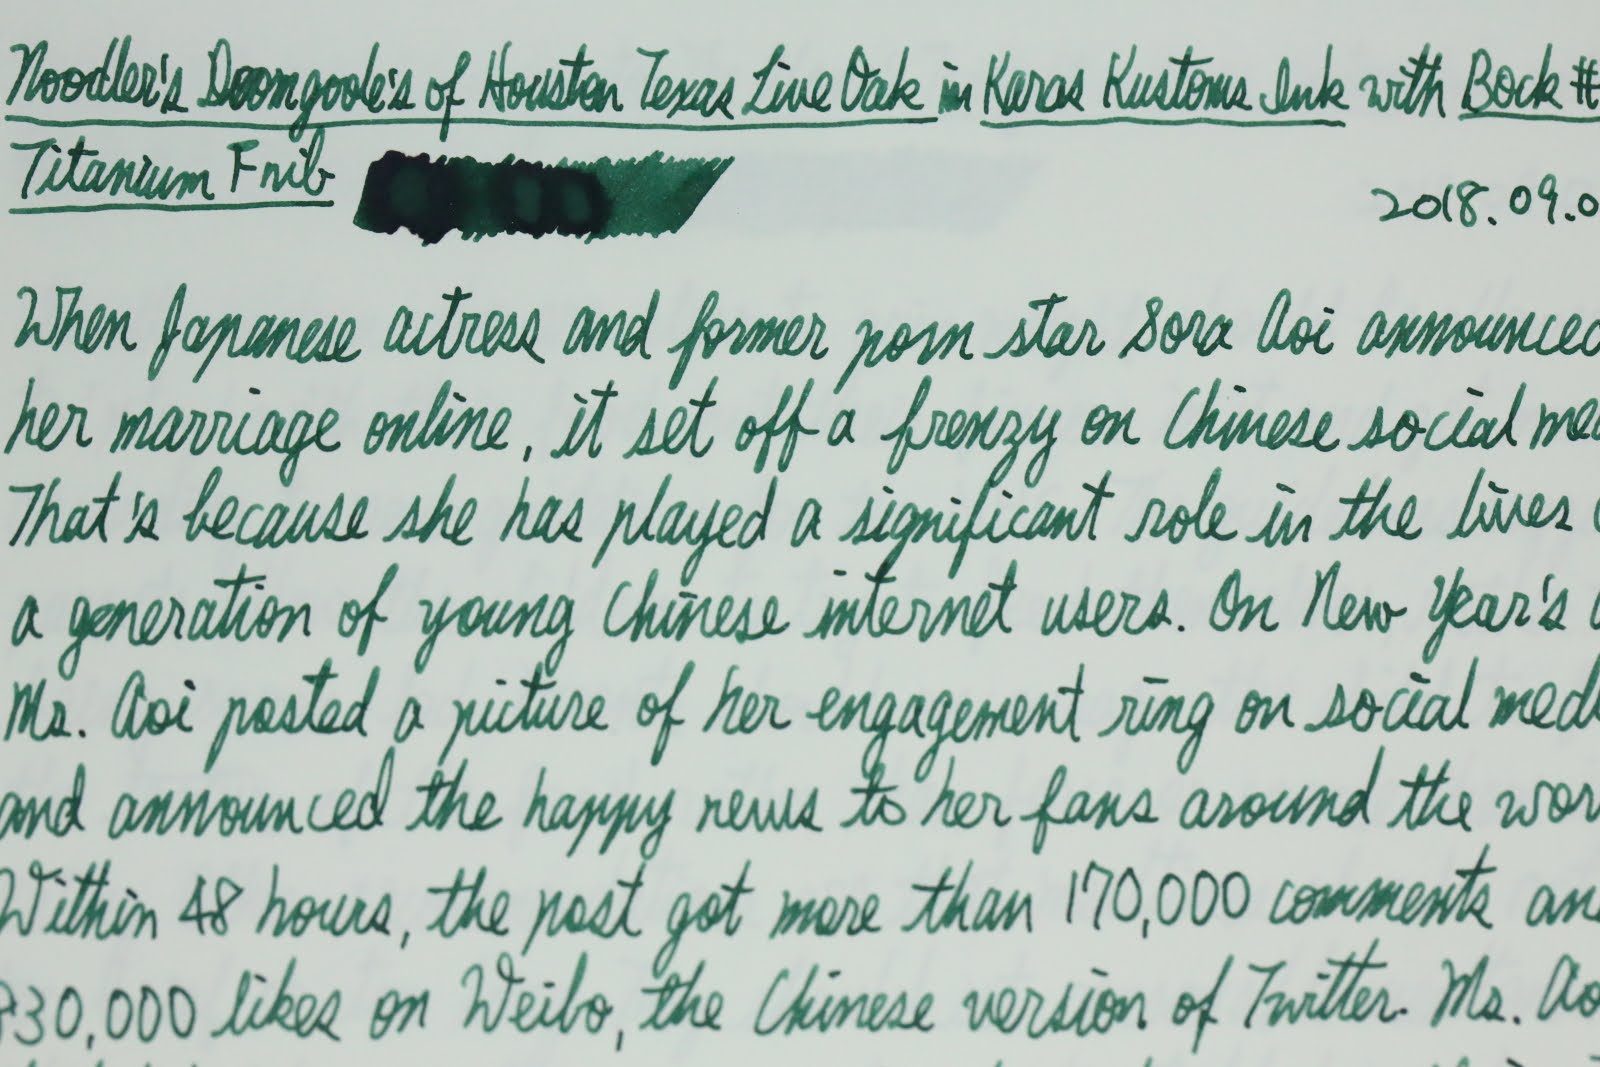 Noodler's Dromgoole's of Houston Texas Live Oak in Karas Kustoms Ink with Bock #
Titanium F nib
2018.09.0
When Japanese actress and former porn star Sora Aoi announced
her marriage online, it set off a frenzy on Chinese social me
That's because she has played a significant role in the lives
a generation of young Chinese internet users. On New Year's
Ms. Aoi posted a picture of her engagement ring on social med
and announced the happy news to her fans around the wor
Within 48 hours, the post got more than 170,000 comments an
830,000 likes on Weibo, the Chinese version of Twitter. Ms. Ao